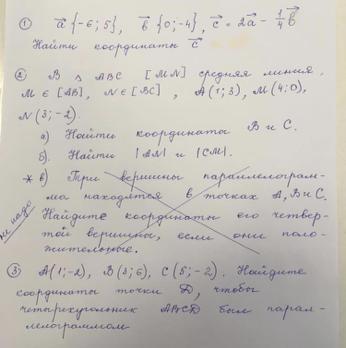 ① a⃗ {-6; 5}, b⃗ {0; -4}, c⃗ = 2a⃗ - 1/4 b⃗
Найти координаты c⃗
② В △ ABC [MN] средняя линия,
M ∈ [AB], N ∈ [BC], A(1; 3), M(4; 0),
N(3; -2).
а) Найти координаты B и C.
б). Найти |AN| и |CM|.
* в) Три вершины параллелограм-
ма находятся в точках A, B и C.
Найдите координаты его четвер-
той вершины, если они поло-
жительные.
не надо
③ A(1; -2), B(3; 6), C(5; -2). Найдите
координаты точки D, чтобы
четырехугольник ABCD был парал-
лелограммом